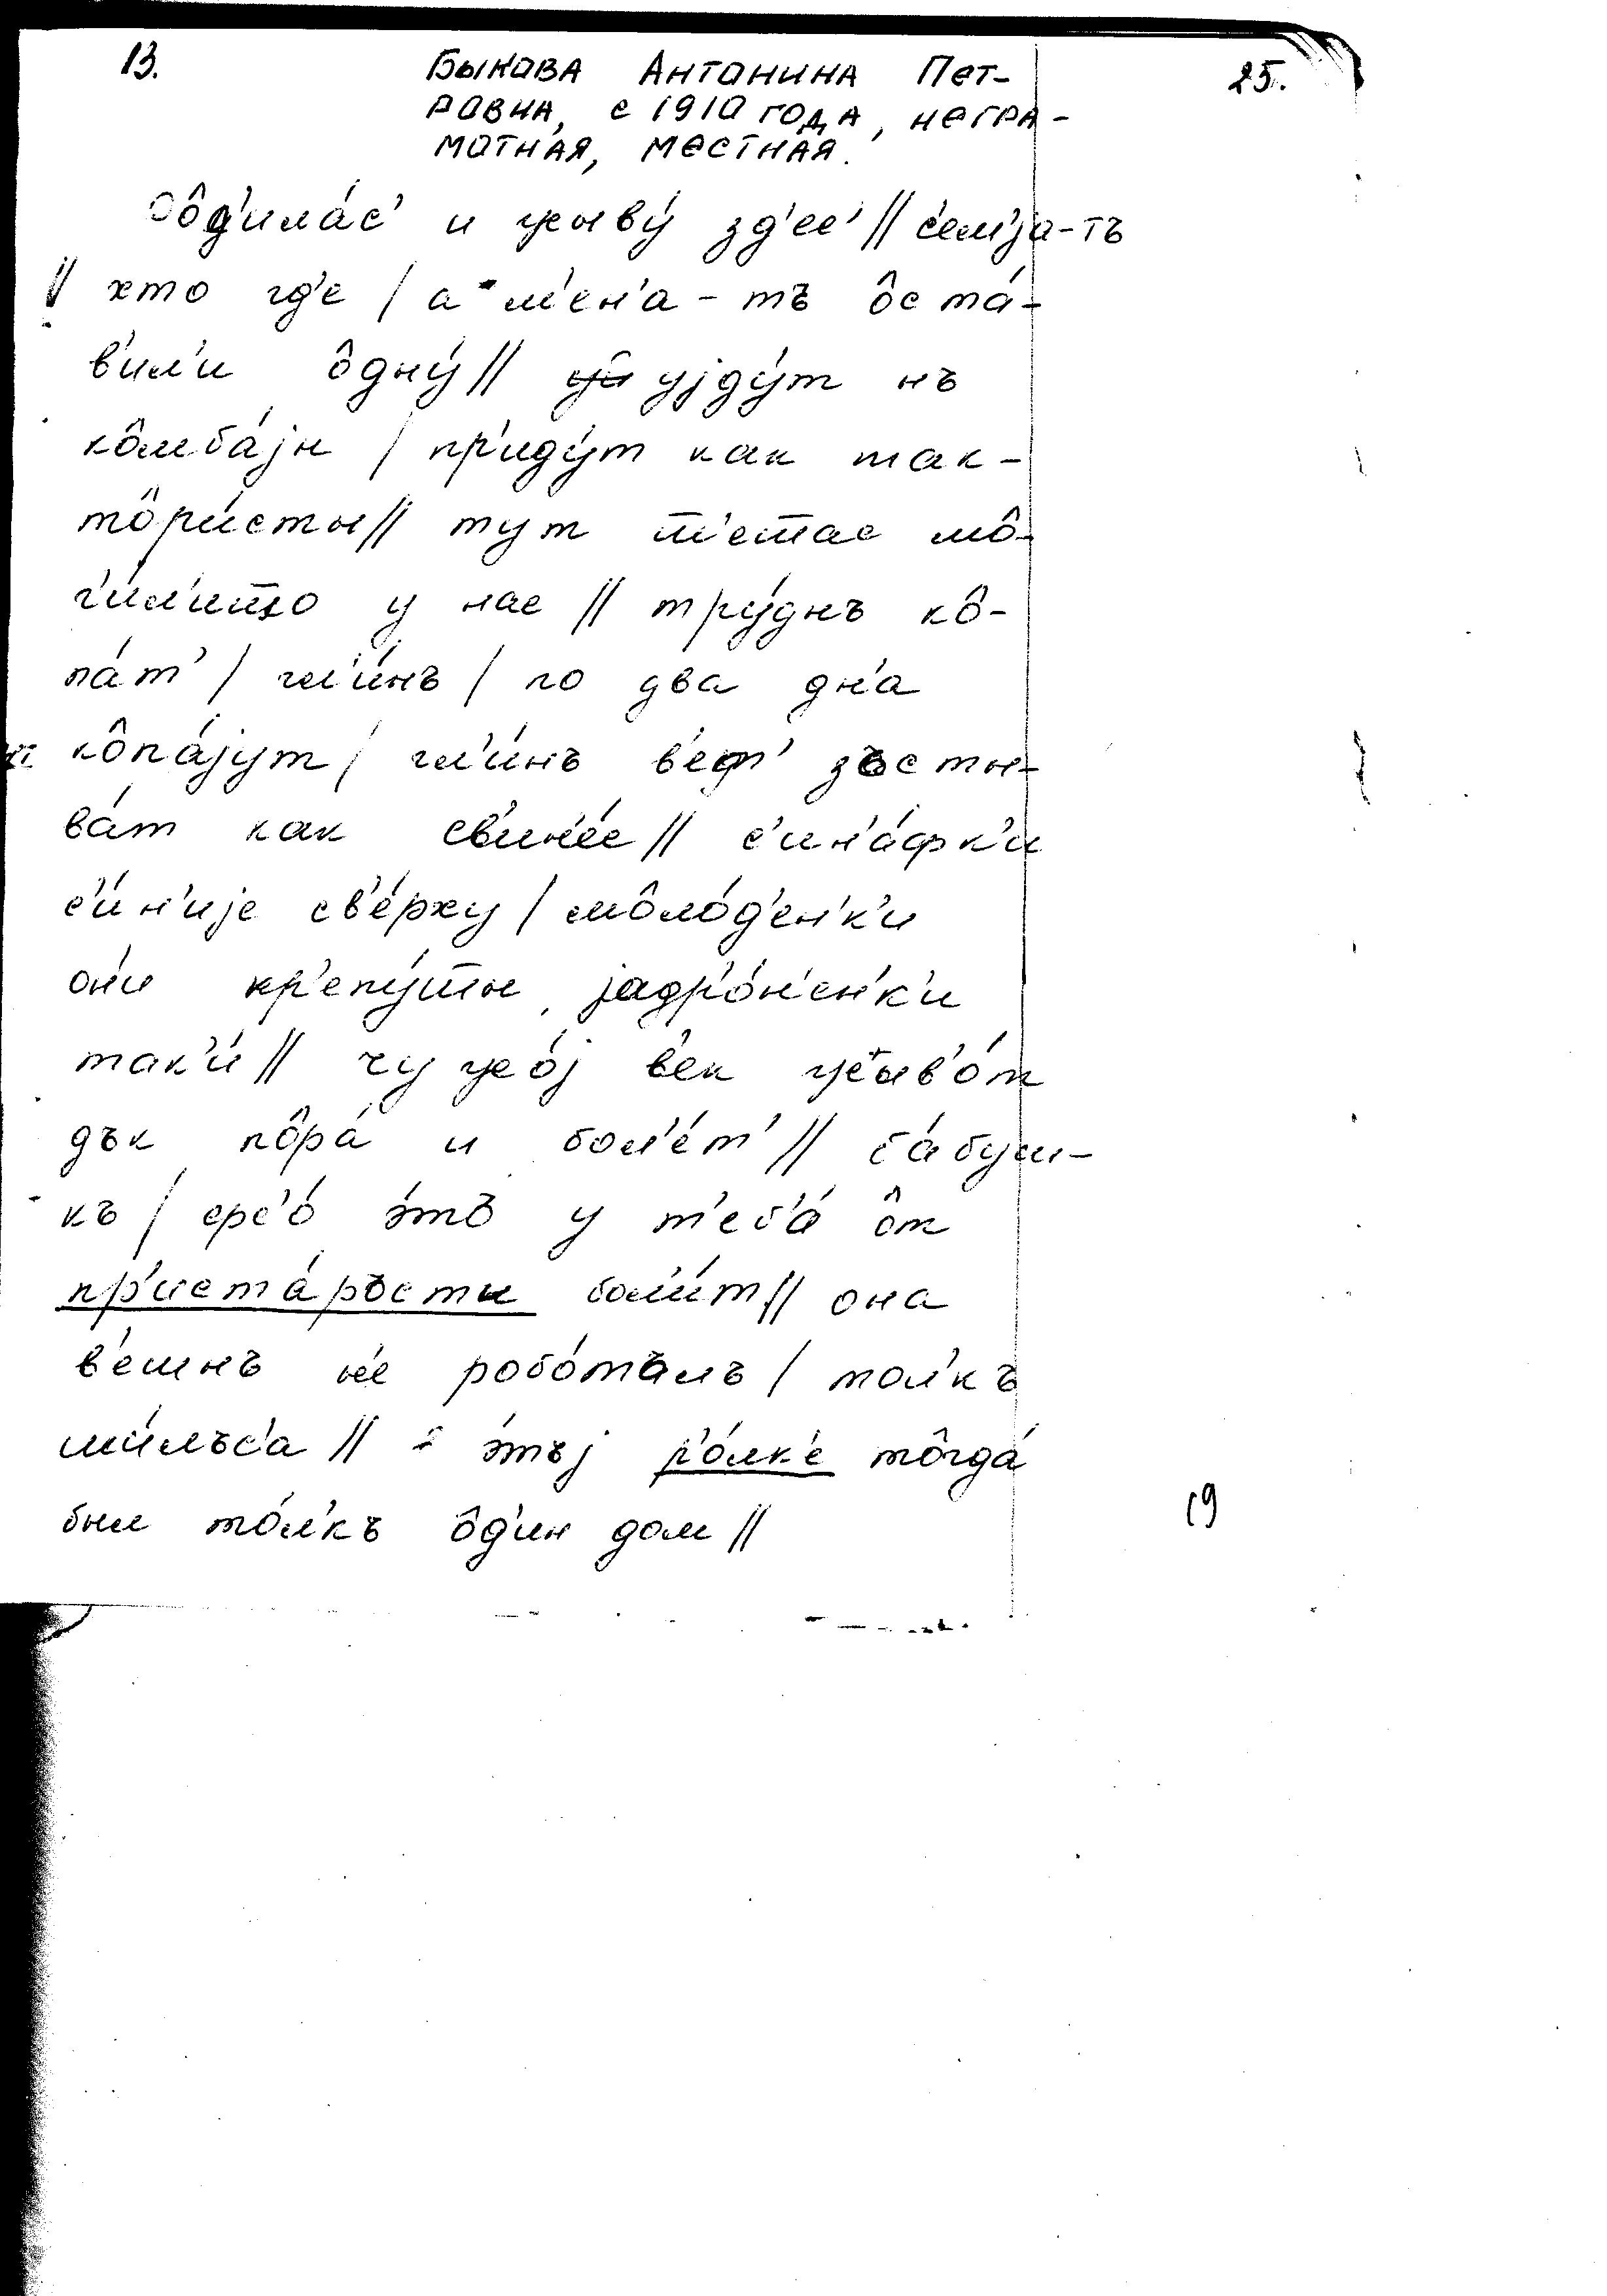 13.
Быкова Антонина Пет-
ровна, с 1910 года, негра-
мотная, местная.
25.
рôд'илáс' и жывý зд'ес' // с'ем'jа-тъ
// хто гд'е / а м'ен'а-тъ ôстá-
в'ил'и ôднý // уjдýт нъ
кôмбájн / пр'идýт как так-
тôри́сты // тут т'еш̅ас мô-
г'и́л'иш̅о у нас // трýднъ кô-
пáт' / гл'и́нъ / по два дн'а
кôпájут / гл'и́нъ в'ет' зъсты-
вáт как св'ин'éс // с'ин'áфк'и
с'и́н'иjе св'éрху / мôлóд'ен'к'и
он'и кр'епýш̅ы jадр'óн'ен'к'и
так'и́ // чужój в'ек жыв'óт
дък пôрá и бол'éт' // бáбуш-
къ / фс'ó э́тъ у т'еб'á ôт
пр'истáрости бол'и́т // она
в'ешнъ н'е робóтълъ / тол'къ
мы́лъс'а // э́тъj р'óлк'е тôгдá
был тóл'къ ôд'ин дом //
19